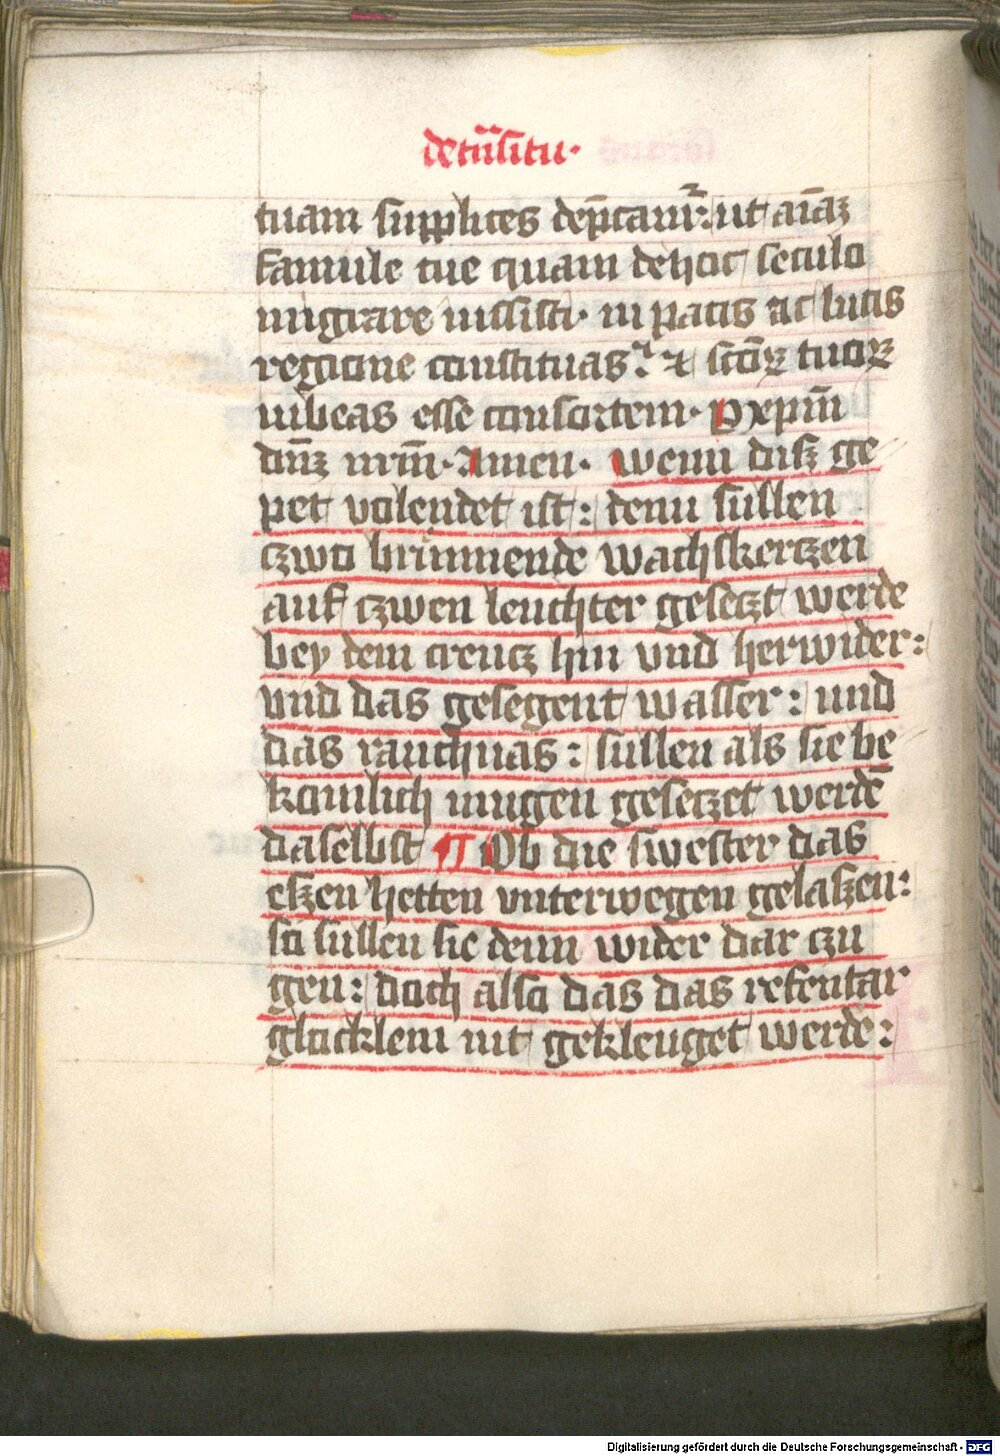 de tn̄situ·
tuam supplices dep̄camur᷑: ut aīaꝫ
famule tue quam de hoc seculo
migrare iussisti· in pacis ac lucis
regione constituas: ⁊ sctōꝝ tuoꝝ
iubeas esse consortem· P xp̄m
dn̄ꝫ nrm̄· Amen· Wenn diſz ge
pet volendet ist: denn sullen
czwo brinnende wachskerczen
auf czwen leuchter geseczt werdē
bey dem creucz hin vnd herwider:
vnd das gesegent wasser: und
das rauchuas: sullen als sie be
komlich mugen geseczet werdē
daselbst ¶ Ob die swester das
eſzen hetten vnterwegen gelaſzen:
so sullen sie denn wider dar czu
gen: doch also das das refentar
glocklein nit gekleuget werde:
Digitalisierung gefördert durch die Deutsche Forschungsgemeinschaft - DFG